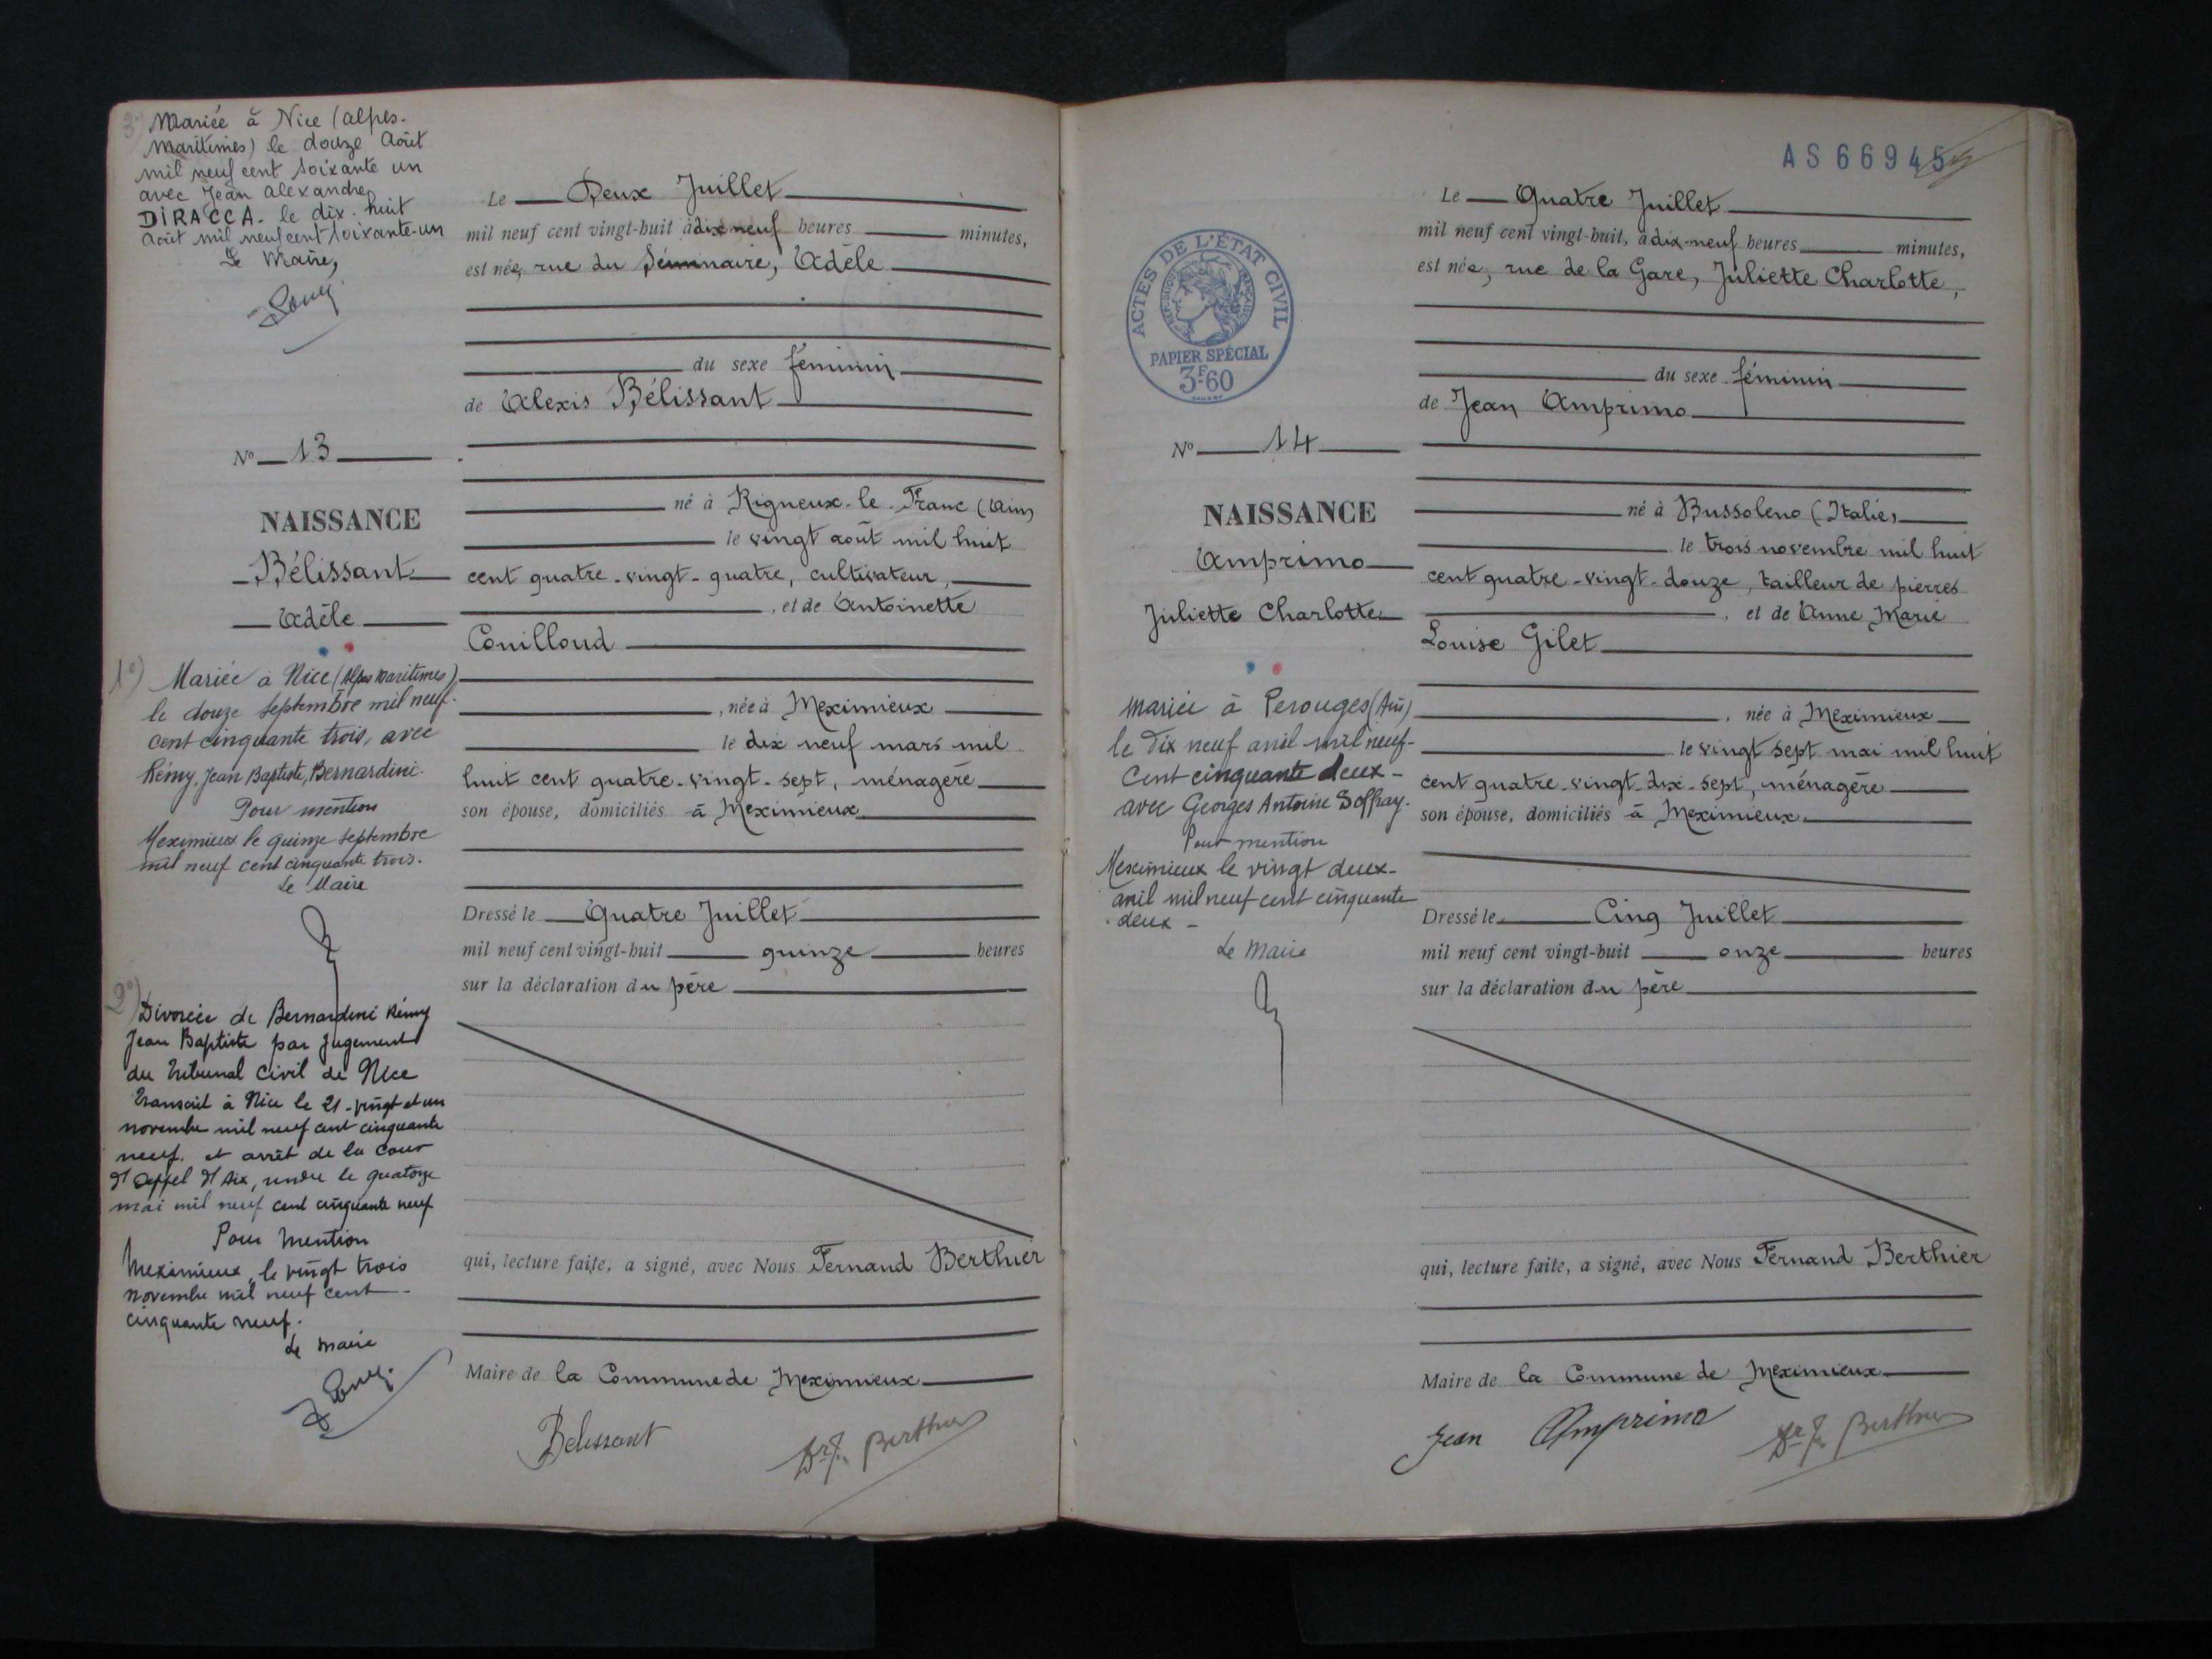 3°) Mariée à Nice (Alpes-
Maritimes) le douze Août
mil neuf cent soixante un
avec Jean Alexandre
DIRACCA. le dix-huit
Août mil neuf cent soixante-un
Le Maire,
N° 13
NAISSANCE
Bélissant
Adèle
1°) Mariée à Nice (Alpes Maritimes)
le douze septembre mil neuf
cent cinquante trois, avec
Rémy, Jean Baptiste, Bernardini.
Pour mention
Meximieux le quinze septembre
mil neuf cent cinquante trois.
Le Maire
2°) Divorcée de Bernardini Rémy
Jean Baptiste par jugement
du Tribunal Civil de Nice
transcrit à Nice le 21 - vingt et un
novembre mil neuf cent cinquante
neuf. et arrêt de la Cour
d'Appel d'Aix, rendu le quatorze
mai mil neuf cent cinquante neuf
Pour Mention
Meximieux, le vingt trois
novembre mil neuf cent
cinquante neuf.
Le Maire
Le Deux Juillet
mil neuf cent vingt-huit à dix neuf heures minutes,
est née, rue du Séminaire, Adèle
du sexe féminin
de Alexis Bélissant
né à Rigneux-le-Franc (Ain)
le vingt août mil huit
cent quatre-vingt-quatre, cultivateur,
, et de Antoinette
Couilloud
, née à Meximieux
le dix neuf mars mil
huit cent quatre-vingt-sept, ménagère
son épouse, domiciliés à Meximieux
Dressé le Quatre Juillet
mil neuf cent vingt-huit quinze heures
sur la déclaration du père
qui, lecture faite, a signé, avec Nous Fernand Berthier
Maire de la Commune de Meximieux
Belissant Dr F. Berthier
AS 66945
ACTES DE L'ÉTAT CIVIL
PAPIER SPÉCIAL
3F60
N° 14
NAISSANCE
Amprimo
Juliette Charlotte
Mariée à Perouges (Ain)
le dix neuf avril mil neuf-
Cent cinquante deux -
avec Georges Antoine Soffray.
Pour mention
Meximieux le vingt deux-
avril mil neuf cent cinquante
deux -
Le Maire
Le Quatre Juillet
mil neuf cent vingt-huit, à dix-neuf heures minutes,
est née, rue de la Gare, Juliette Charlotte,
du sexe féminin
de Jean Amprimo
né à Bussoleno (Italie)
le trois novembre mil huit
cent quatre-vingt-douze, tailleur de pierres
, et de Anne Marie
Louise Gilet
, née à Meximieux
le vingt sept mai mil huit
cent quatre-vingt-dix-sept, ménagère
son épouse, domiciliés à Meximieux.
Dressé le Cinq Juillet
mil neuf cent vingt-huit onze heures
sur la déclaration du père
qui, lecture faite, a signé, avec Nous Fernand Berthier
Maire de la Commune de Meximieux
Jean Amprimo Dr F. Berthier